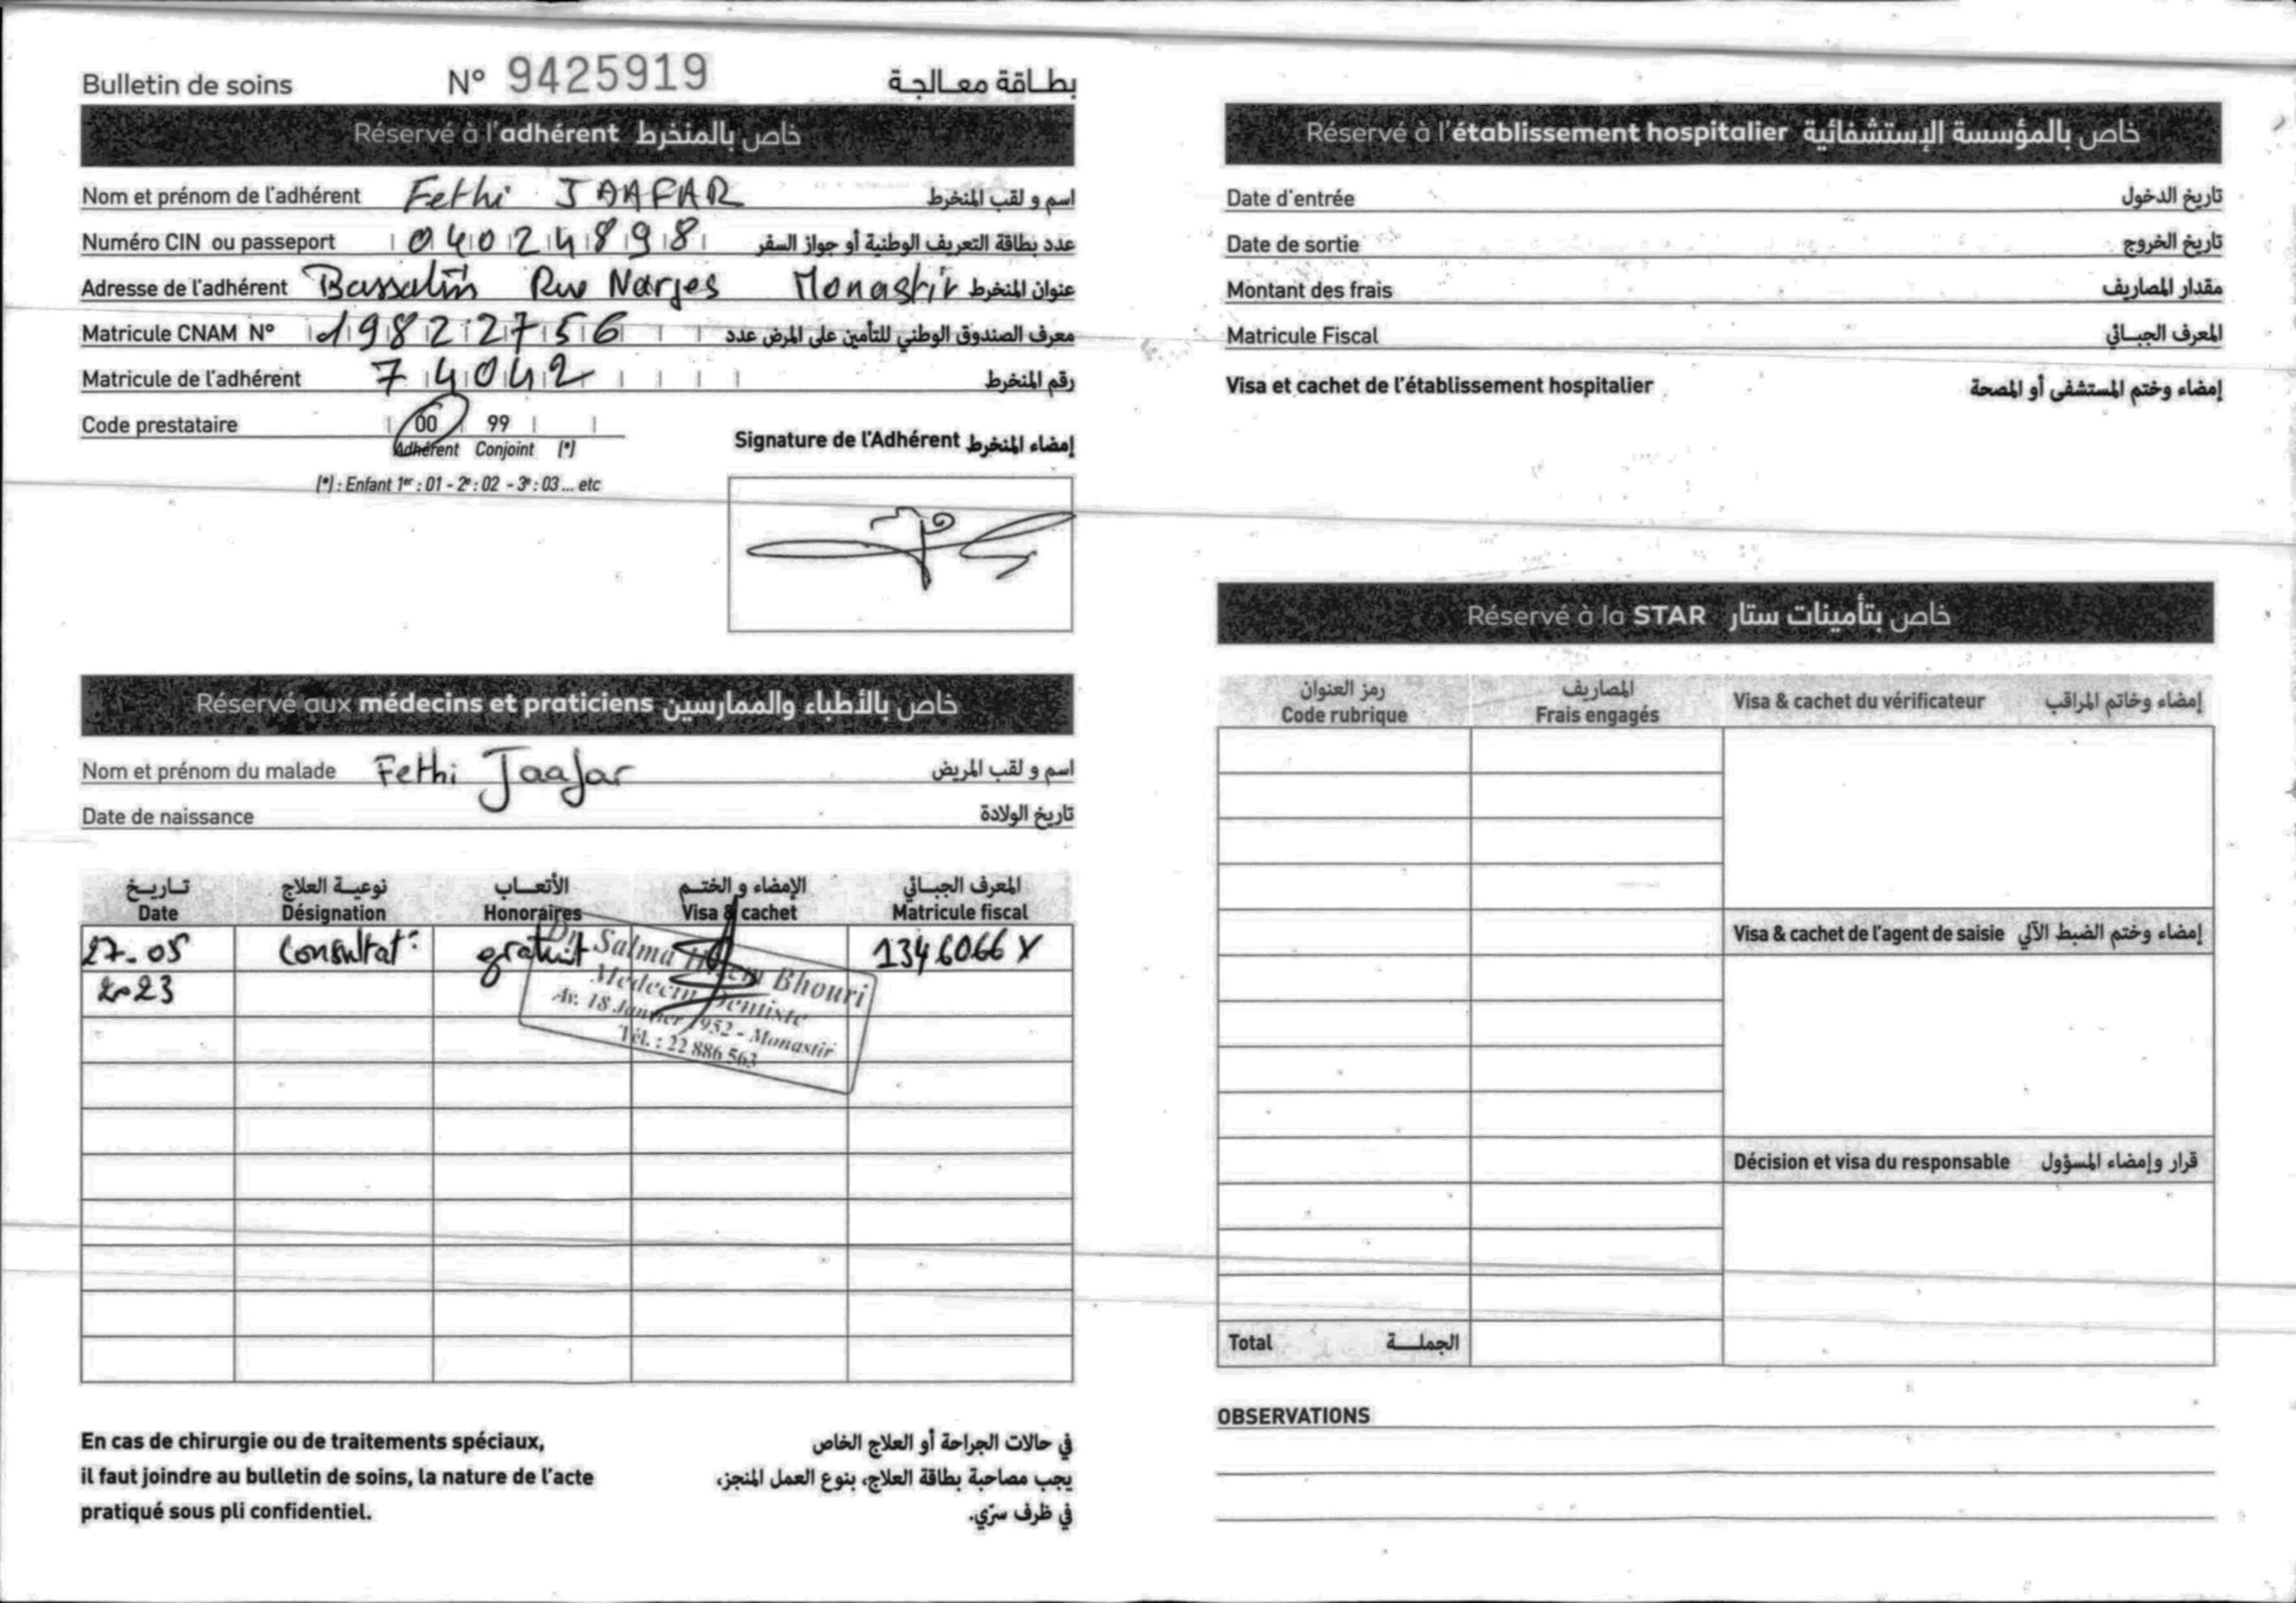 Bulletin de soins N° 9425919 بطاقة معالجة
Réservé à l'adhérent خاص بالمنخرط
Nom et prénom de l'adhérent Fethi JAAFAR اسم و لقب المنخرط
Numéro CIN ou passeport 04024898 عدد بطاقة التعريف الوطنية أو جواز السفر
Adresse de l'adhérent Rue Narjes Monastir عنوان المنخرط
Matricule CNAM N° 19822756 معرف الصندوق الوطني للتأمين على المرض عدد
Matricule de l'adhérent 74042 رقم المنخرط
Code prestataire 00 99
Adhérent Conjoint (*)
(*) : Enfant 1er : 01 - 2e : 02 - 3e : 03 ... etc
Signature de l'Adhérent إمضاء المنخرط
Réservé aux médecins et praticiens خاص بالأطباء والممارسين
Nom et prénom du malade Fethi Jaafar اسم و لقب المريض
Date de naissance تاريخ الولادة
تاريخ نوعية العلاج الأتعاب الإمضاء و الختم المعرف الجبائي
Date Désignation Honoraires Visa & cachet Matricule fiscal
27.05 Consultat° gratuit 1346066 X
2023
Dr. Salma Bhouri
Médecin Dentiste
Av. 18 Janvier 1952 - Monastir
Tél. : 22 886 563
En cas de chirurgie ou de traitements spéciaux,
il faut joindre au bulletin de soins, la nature de l'acte
pratiqué sous pli confidentiel.
في حالات الجراحة أو العلاج الخاص
يجب مصاحبة بطاقة العلاج، بنوع العمل المنجز،
في ظرف سرّي.
Réservé à l'établissement hospitalier خاص بالمؤسسة الإستشفائية
Date d'entrée تاريخ الدخول
Date de sortie تاريخ الخروج
Montant des frais مقدار المصاريف
Matricule Fiscal المعرف الجبائي
Visa et cachet de l'établissement hospitalier إمضاء وختم المستشفى أو المصحة
Réservé à la STAR خاص بتأمينات ستار
رمز العنوان المصاريف
Code rubrique Frais engagés Visa & cachet du vérificateur إمضاء وخاتم المراقب
Visa & cachet de l'agent de saisie إمضاء وختم الضبط الآلي
Décision et visa du responsable قرار وإمضاء المسؤول
Total الجملة
OBSERVATIONS